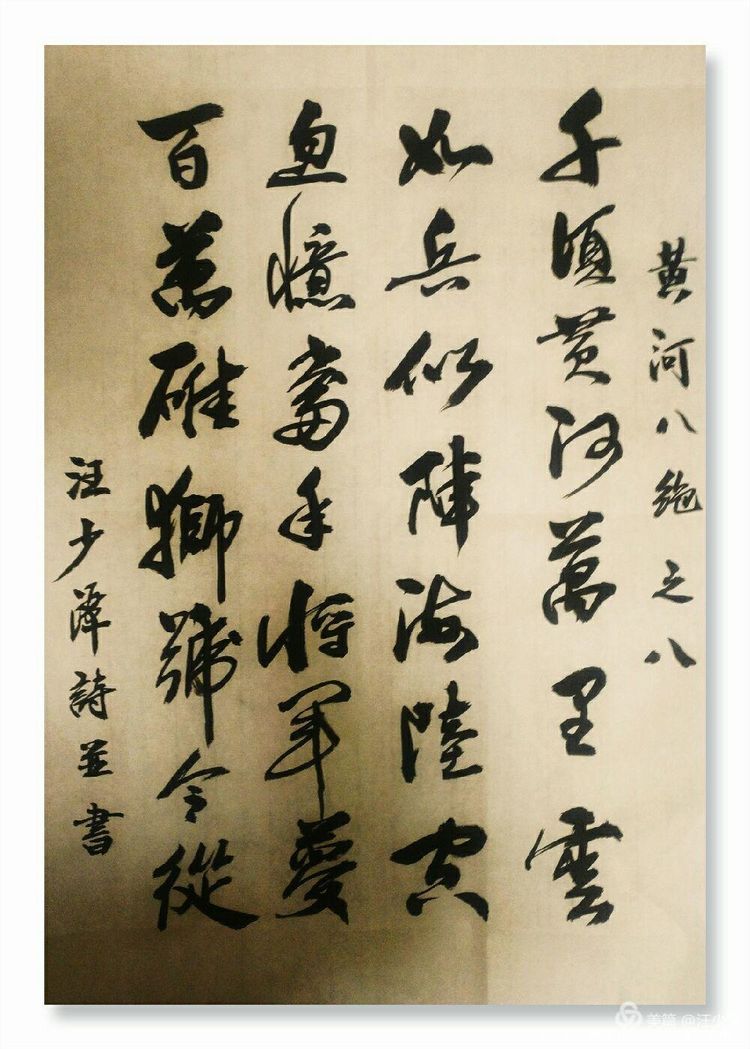 黄河八絶之八
千頃黄河萬里雲
如兵似陣海陸空
迴憶當年將軍夢
百萬雄獅號令從
汪少澤詩並書
美篇 @汪少